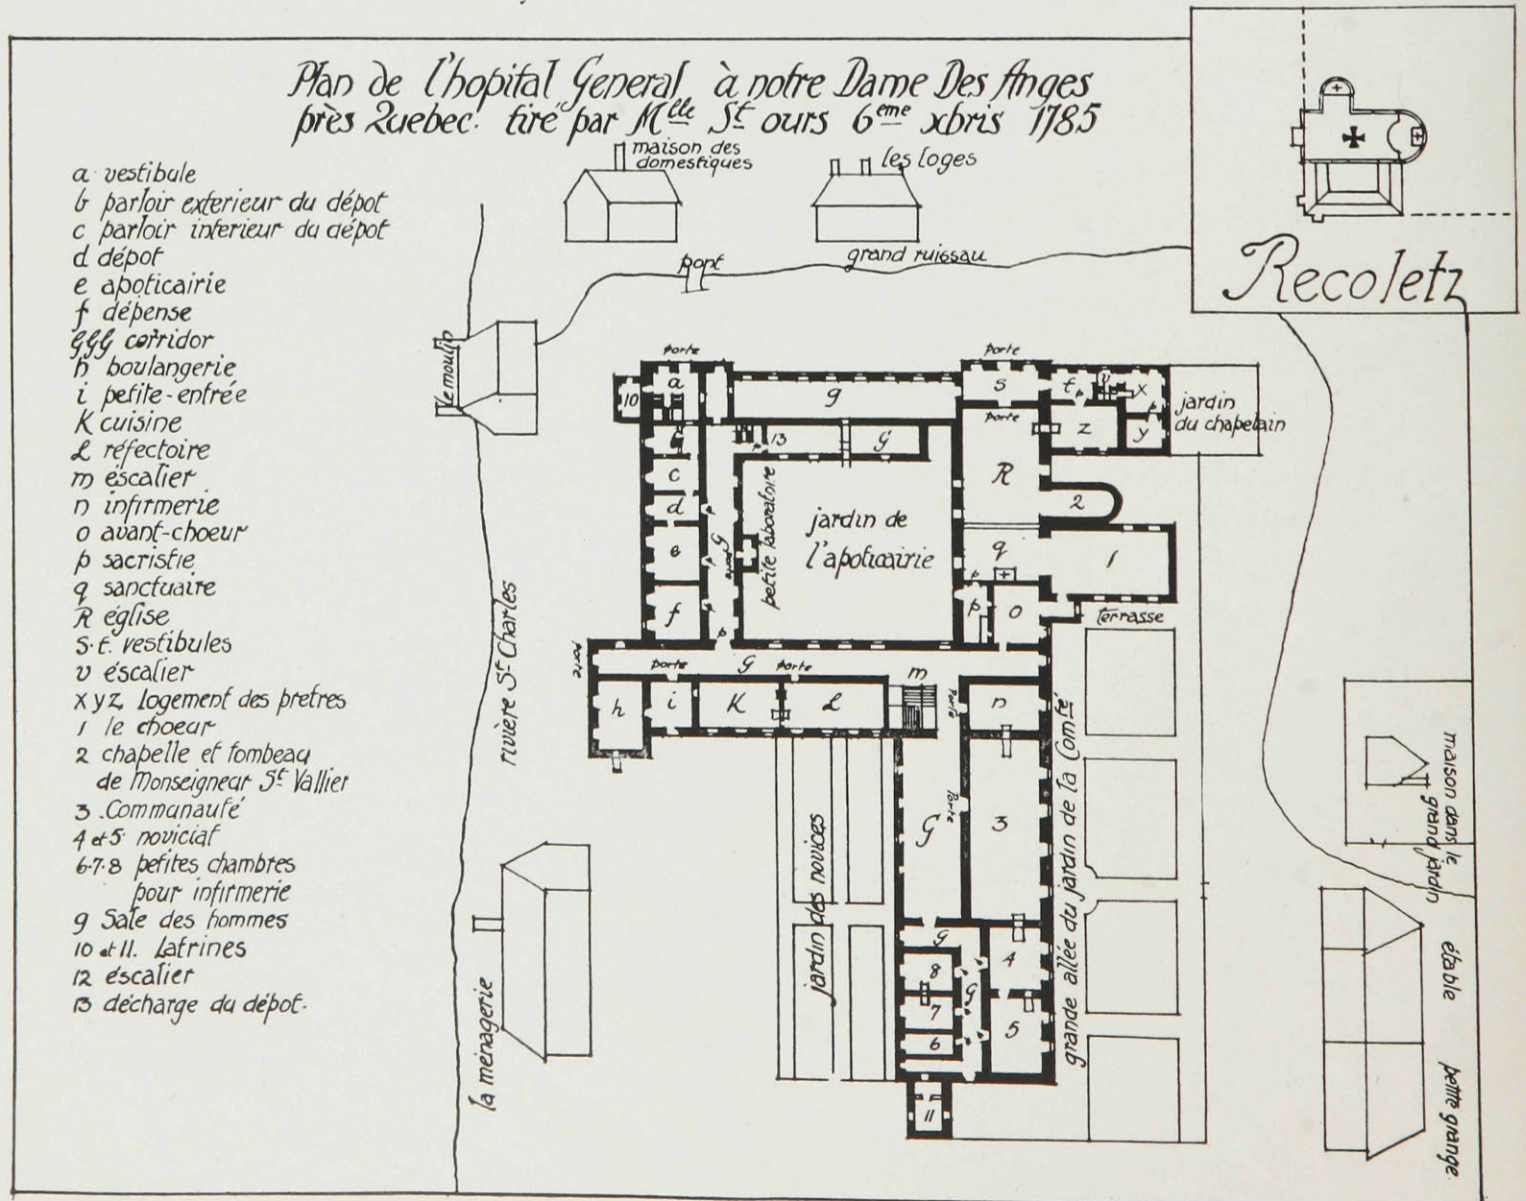 Plan de l'hopital General à notre Dame Des Anges
près Quebec. tiré par Mlle St ours 6eme xbris 1785
a vestibule
b parloir exterieur du dépot
c parloir interieur du dépot
d dépot
e apoticairie
f dépense
GGG corridor
h boulangerie
i petite-entrée
K cuisine
L réfectoire
m éscalier
n infirmerie
o avant-choeur
p sacristie
q sanctuaire
R église
S.t. vestibules
v éscalier
x y z logement des pretres
1 le choeur
2 chapelle et tombeau
de Monseigneur St Vallier
3 .Communauté
4 et 5 noviciat
6-7-8 petites chambres
pour infirmerie
9 Sale des hommes
10 et 11. Latrines
12 éscalier
13 décharge du dépot.
maison des
domestiques
les loges
pont
grand ruissau
Recoletz
le moulin
rivière St Charles
la ménagerie
porte
porte
10
a
9
s
t
p
v
x
p
y
z
jardin
du chapelain
porte
13
p
G
c
d
e
f
p
G
porte
p
p
p
petite laboratoire
jardin de
l'apoticairie
R
2
q
1
p
p
o
terrasse
porte
porte
G
porte
m
h
i
K
L
porte
n
porte
G
3
jardin des novices
grande allée du jardin de la Comté
G
8
G
4
7
5
6
11
maison dans le
grand jardin
étable
petite grange